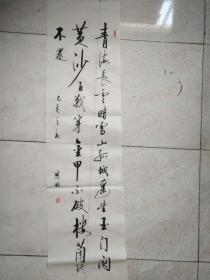 青海長雲暗雪山孤城遥望玉门関
黄沙百戰穿金甲不破樓蘭終
不還
己亥